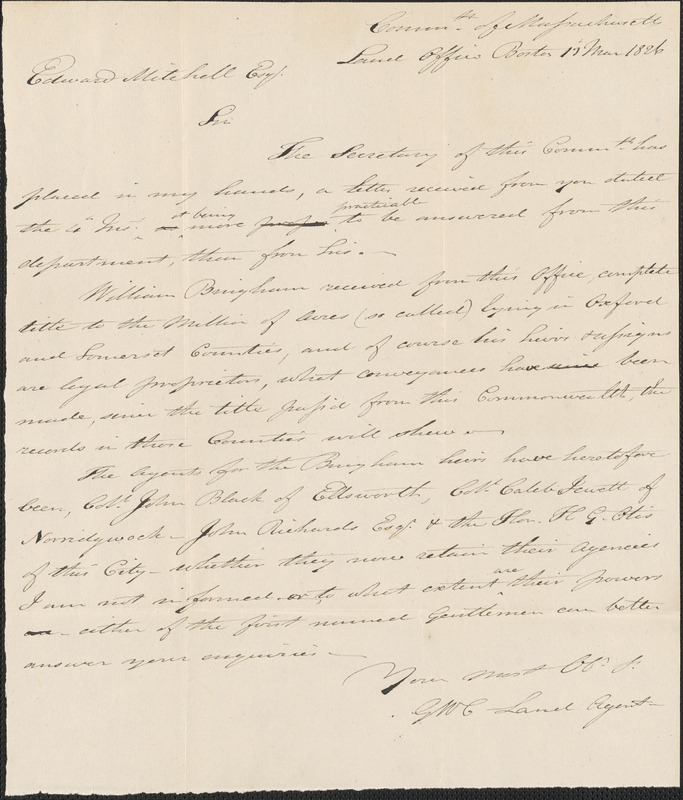 Commth. of Massachusetts
Land Office Boston 15 Mar 1826
Edward Mitchell Esqr.
Sir
The Secretary of this Commth. has
placed in my hands, a letter received from you dated
the 4th Inst. it being more practicable to be answered from this
department, than from his.—
William Bingham received from this Office, complete
title to the Million of Acres (so called) lying in Oxford
and Somerset Counties, and of course his heirs & assigns
are legal proprietors, what conveyances have been
made, since the title pass'd from this Commonwealth, the
records in those Counties will shew—
The Agents for the Bingham heirs have heretofore
been, Col. John Black of Ellsworth, Col. Caleb Jewett of
Norridgwock— John Richards Esqr. & the Hon. H. G. Otis
of this City— whether they now retain their agencies
I am not informed— or to what extent are their powers
— either of the first named Gentlemen can better
answer your enquiries—
Your most Obt. St.
GWC Land Agent—